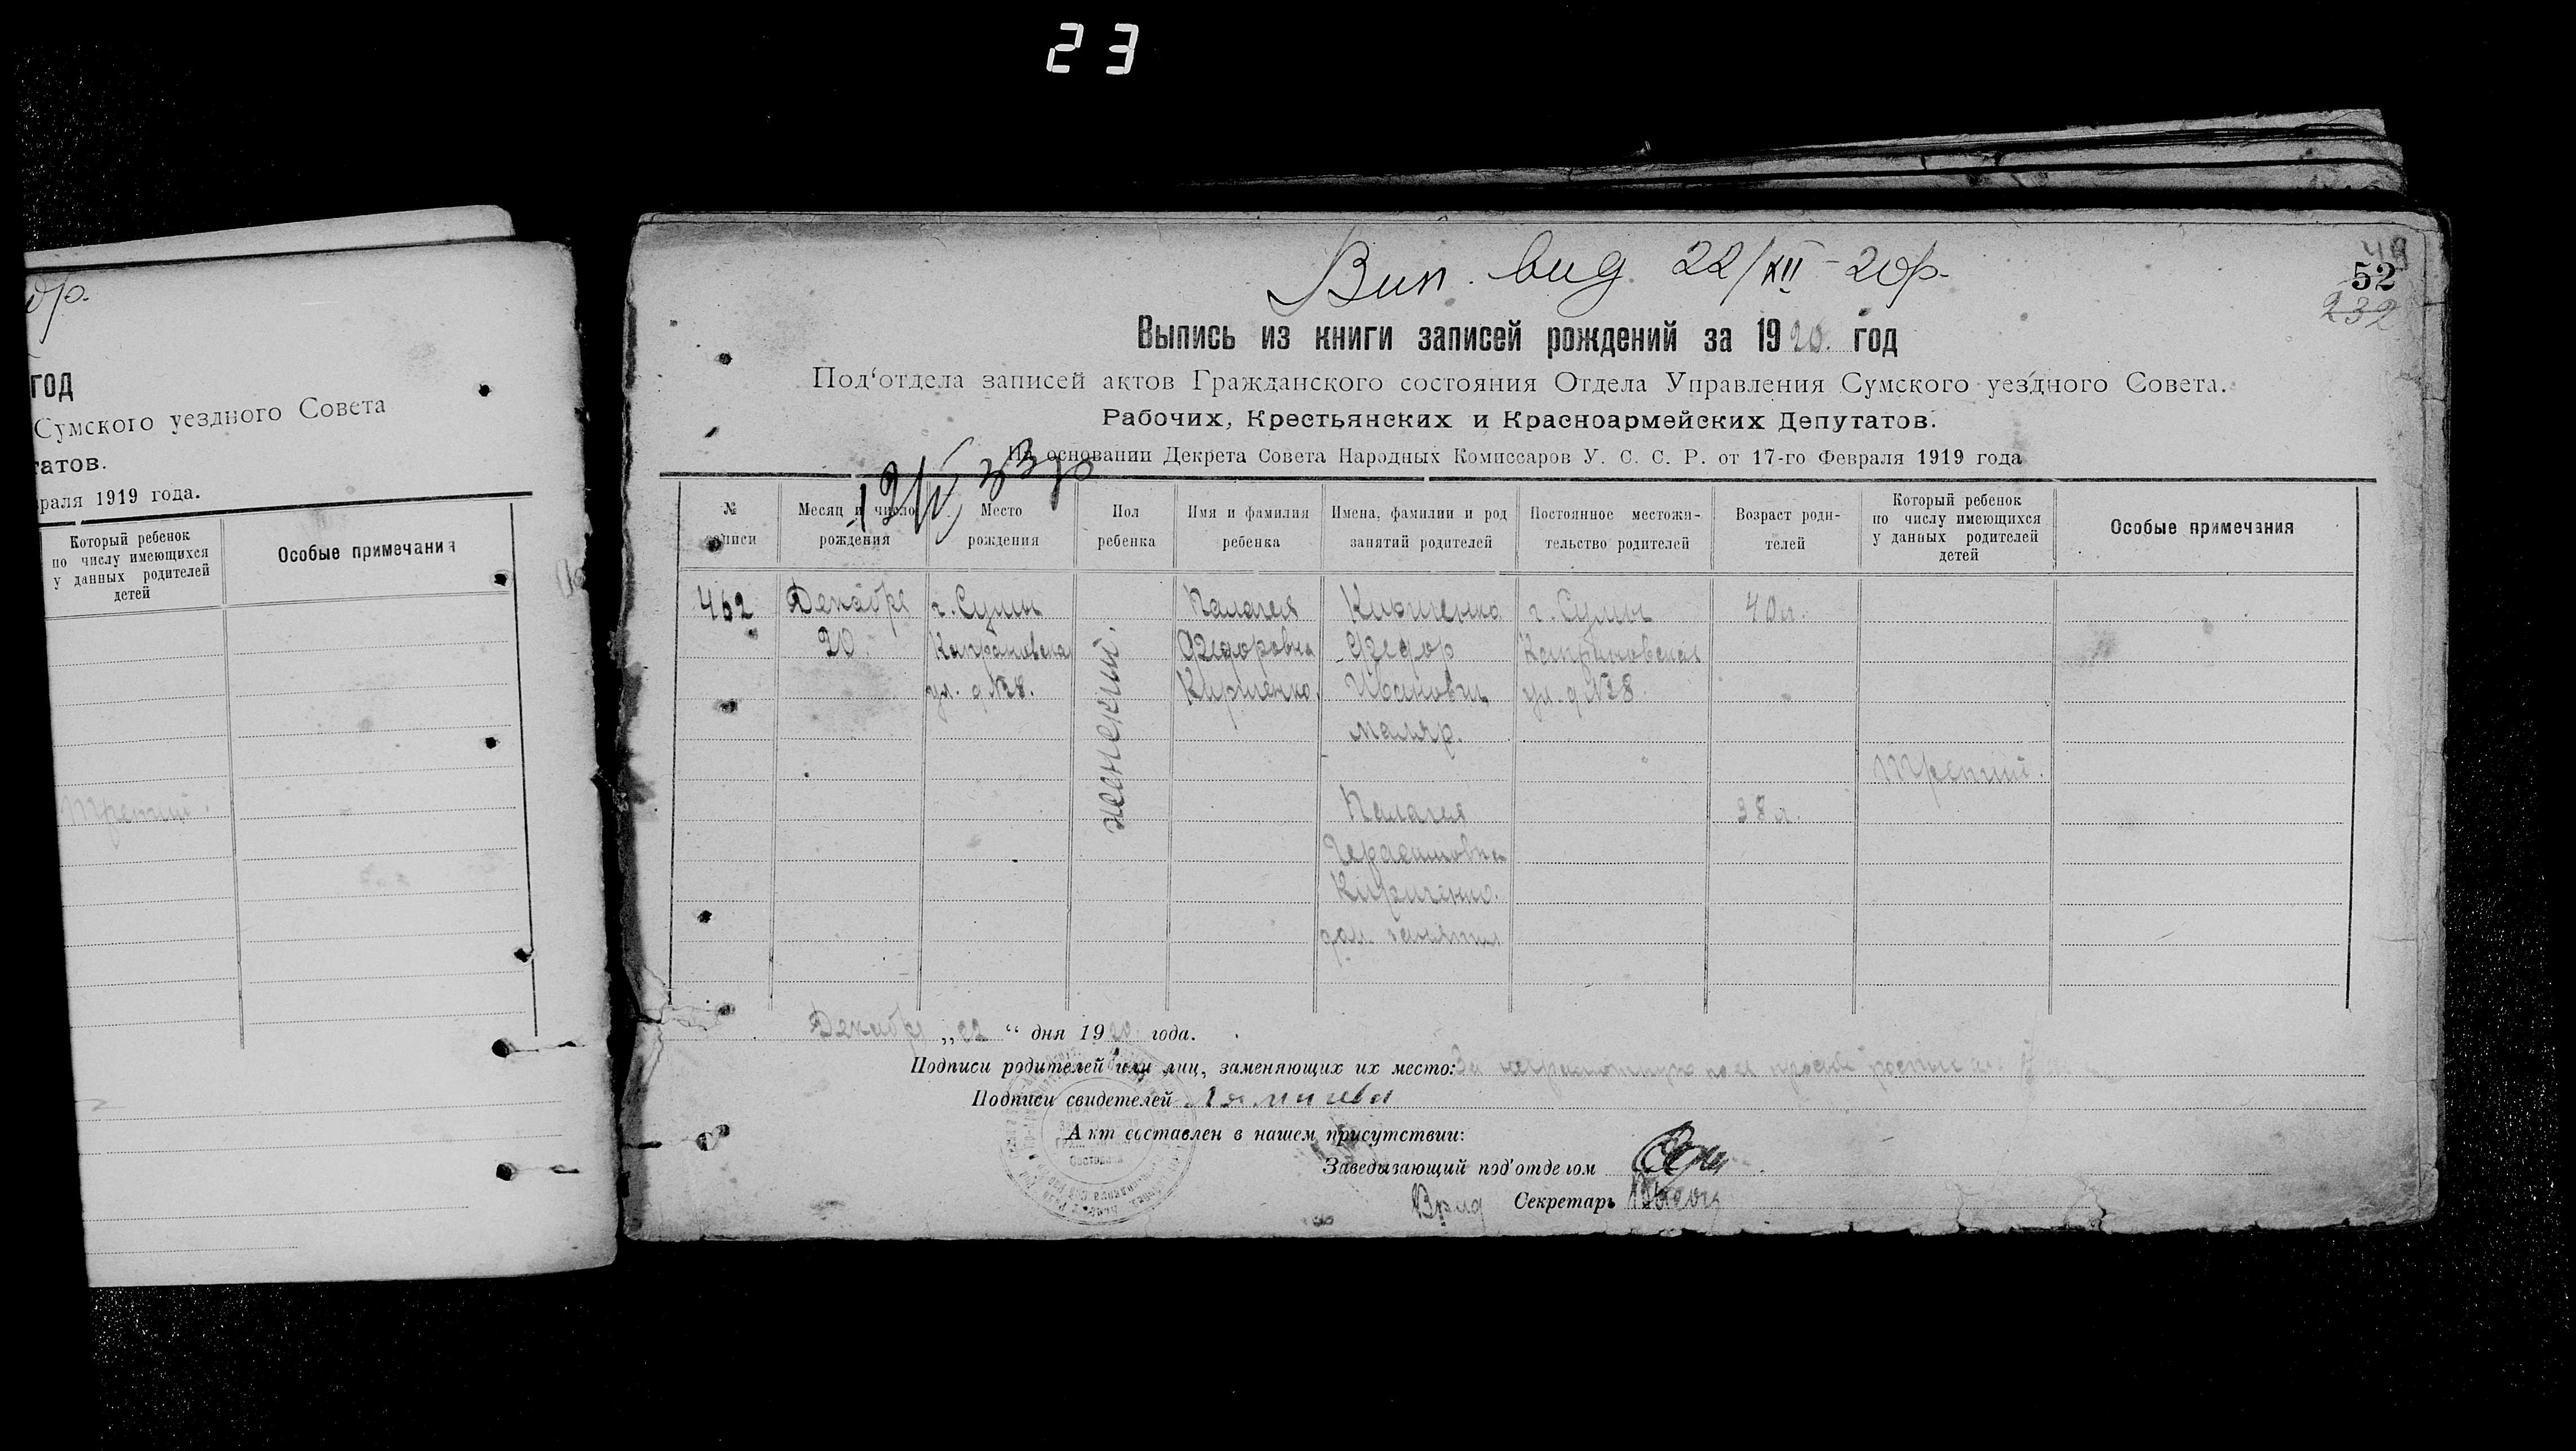 23
др.
год
Сумского уездного Совета
татов.
враля 1919 года.
Который ребенок
по числу имеющихся
у данных родителей
детей
Особые примечания
Третий.
Вип. вид. 22/XII-20р.
49
52
232
Выпись из книги записей рождений за 1920. год
Под‘отдела записей актов Гражданского состояния Отдела Управления Сумского уездного Совета.
Рабочих, Крестьянских и Красноармейских Депутатов.
На основании Декрета Совета Народных Комиссаров У. С. С. Р. от 17-го Февраля 1919 года
№
записи
Месяц и число
рождения
Место
рождения
Пол
ребенка
Имя и фамилия
ребенка
Имена, фамилии и род
занятий родителей
Постоянное местожи-
тельство родителей
Возраст роди-
телей
Который ребенок
по числу имеющихся
у данных родителей
детей
Особые примечания
462
Декабре
20.
г. Сумы
ул. д №28.
женский.
Палагея
Федоровна
Кириченко.
Кириченко
Федор
Иванович,
маляр.
Палагея
Герасимовна
Кириченко.
дом. занятия
г. Сумы
ул. д №28
40 л.
38 л.
Третий.
Декабре „22“ дня 1920 года.
Подписи родителей или лиц, заменяющих их место: За неграмотную по её просьбе
Подписи свидетелей
Акт составлен в нашем присутствии:
Заведывающий под‘отделом
Врид Секретарь